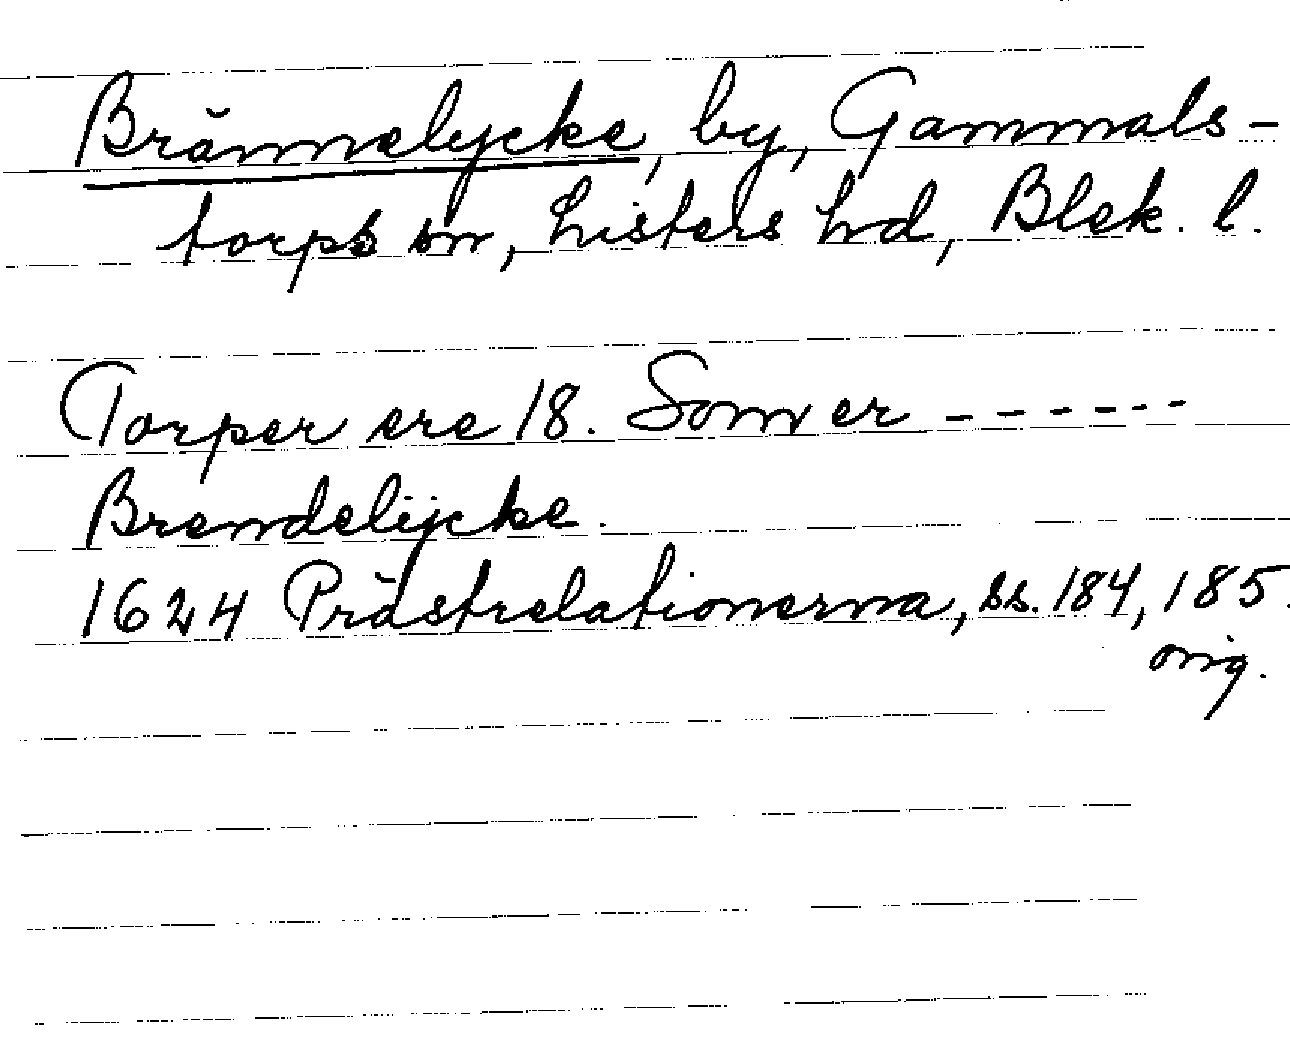 Brännelycke, by, Gammals-
torps sn, Listers hd, Blek. l.
Torper ere 18. Som er - - - - - -
Brendelijcke.
1624 Prästrelationerna, ss. 184, 185.
orig.